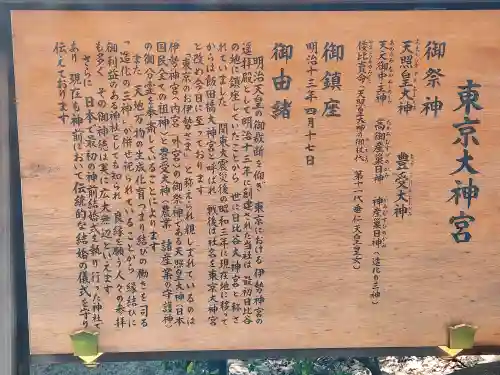 東京大神宮
御祭神
天照皇大神 豊受大神
天之御中主神 高御産巣日神 神産巣日神(造化の三神)
倭比賣命(天照皇大神の御杖代 第十一代垂仁天皇皇女)
御鎮座
明治十三年四月十七日
御由緒
明治天皇の御裁断を仰ぎ 東京における伊勢神宮の
遥拝殿として明治十三年に創建された当社は 最初日比谷
の地に鎮座していたことから 世に日比谷大神宮と称さ
れていましたが 関東大震災後の昭和三年に現在地に移って
からは飯田橋大神宮と呼ばれ 戦後は社名を東京大神宮
と改め今日に至っております
「東京のお伊勢さま」と称えられ親しまれているのは
伊勢神宮(内宮 外宮)の御祭神である天照皇大神(日本
国民全ての祖神)と豊受大神(農業 諸産業の守護神)
の御分霊を奉斎していることによります
また 天地万物の生成化育(つまり結びの働き)を司る
「造化の三神」が併せ祀られていることから 縁結びに
御利益のある神社としても知られ 良縁を願う人々の参拝
も多く その御神徳は実に広大無辺といえます
さらに 日本で最初の神前結婚式を執り行った神社で
あり 現在も神前において伝統的な結婚の儀式を守り
伝えております